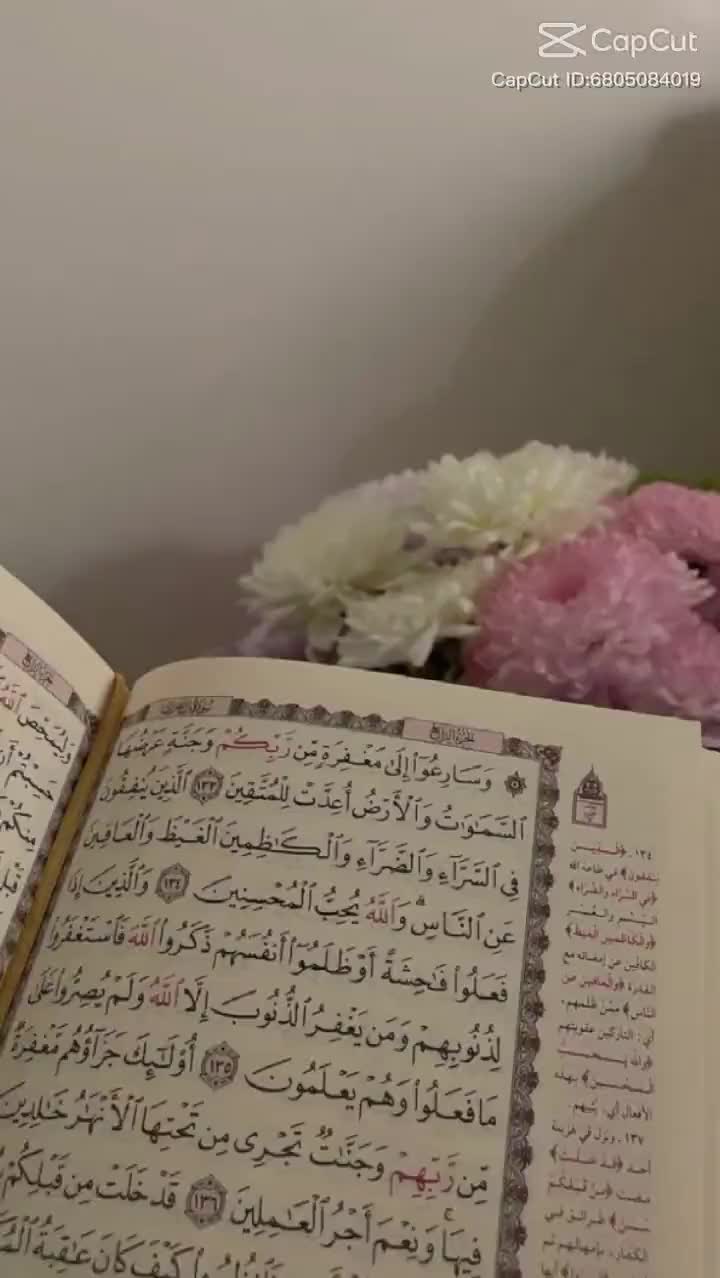 CapCut
CapCut ID:6805084019
وَلِيُمَحِّصَ ٱللَّهُ
سُورَةُ آلِ عِمْرَانَ
الجزء الرابع
۞ وَسَارِعُوٓا۟ إِلَىٰ مَغْفِرَةٍ مِّن رَّبِّكُمْ وَجَنَّةٍ عَرْضُهَا
ٱلسَّمَٰوَٰتُ وَٱلْأَرْضُ أُعِدَّتْ لِلْمُتَّقِينَ ١٣٣ ٱلَّذِينَ يُنفِقُونَ
فِى ٱلسَّرَّآءِ وَٱلضَّرَّآءِ وَٱلْكَٰظِمِينَ ٱلْغَيْظَ وَٱلْعَافِينَ
عَنِ ٱلنَّاسِ ۗ وَٱللَّهُ يُحِبُّ ٱلْمُحْسِنِينَ ١٣٤ وَٱلَّذِينَ إِذَا
فَعَلُوا۟ فَٰحِشَةً أَوْ ظَلَمُوٓا۟ أَنفُسَهُمْ ذَكَرُوا۟ ٱللَّهَ فَٱسْتَغْفَرُوا۟
لِذُنُوبِهِمْ وَمَن يَغْفِرُ ٱلذُّنُوبَ إِلَّا ٱللَّهُ وَلَمْ يُصِرُّوا۟ عَلَىٰ
مَا فَعَلُوا۟ وَهُمْ يَعْلَمُونَ ١٣٥ أُو۟لَٰٓئِكَ جَزَآؤُهُم مَّغْفِرَةٌ
مِّن رَّبِّهِمْ وَجَنَّٰتٌ تَجْرِى مِن تَحْتِهَا ٱلْأَنْهَٰرُ خَٰلِدِينَ
فِيهَا ۚ وَنِعْمَ أَجْرُ ٱلْعَٰمِلِينَ ١٣٦ قَدْ خَلَتْ مِن قَبْلِكُمْ
كَيْفَ كَانَ عَٰقِبَةُ
١٣٤ ـ
ينفقون﴾ في طاعة الله
﴿في السراء والضراء﴾
اليسر والعسر
﴿والكاظمين الغيظ﴾
الكافين عن إمضائه مع
القدرة ﴿والعافين عن
الناس﴾ ممن ظلمهم،
أي: التاركين عقوبتهم
﴿والله يحب
المحسنين﴾ بهذه
الأفعال أي: يثيبهم.
١٣٧ ـ ونزل في هزيمة
أحد ﴿قد خلت﴾
مضت ﴿من قبلكم
سنن﴾ طرائق في
الكفار، بإمهالهم ثم